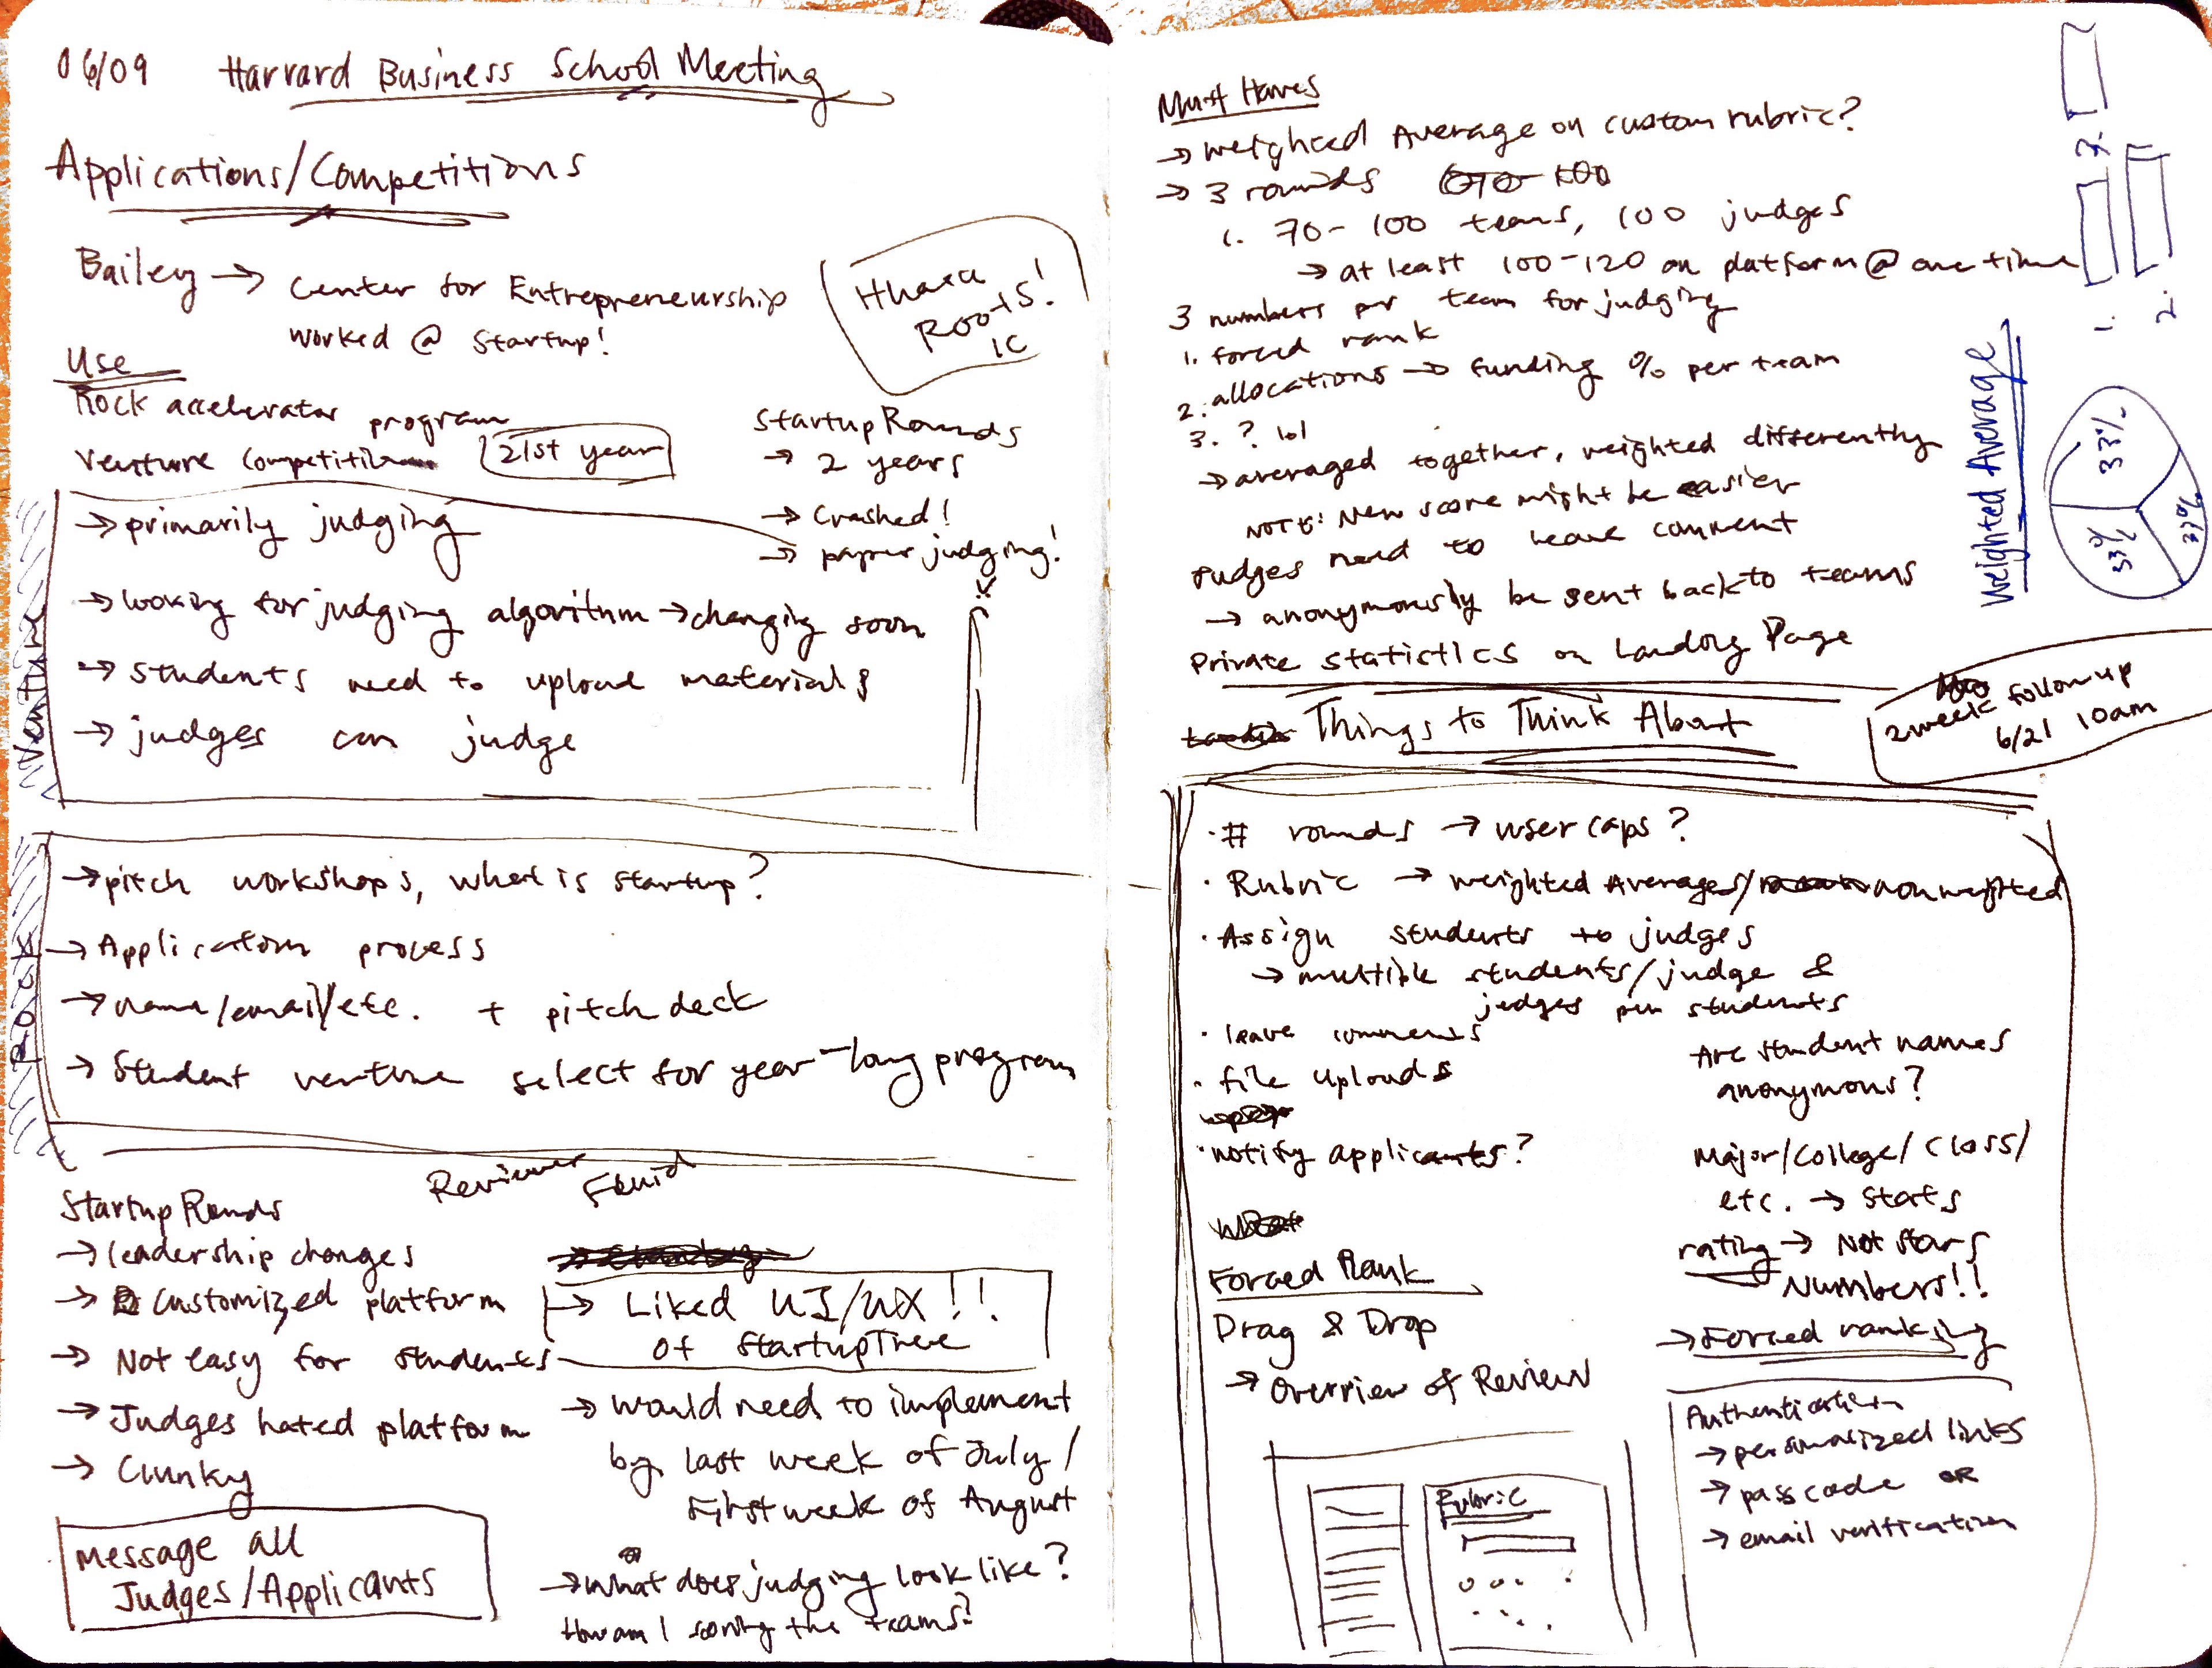 06/09 Harvard Business School Meeting
Applications/Competitions
Bailey → Center for Entrepreneurship
worked @ startup!
Ithaca
Roots!
Use
Rock accelerator program
Venture Competition
21st year
Venture
→ primarily judging
→ looking for judging algorithm → changing soon
→ students need to upload materials
→ judges can judge
StartupRounds
→ 2 years
→ Crashed!
→ paper judging!
Rock
→ pitch workshops, what is startup?
→ Application process
→ name/email/etc. + pitch deck
→ Student venture select for year-long program
Reviewer
Fluid
StartupRounds
→ leadership changes
→ Customized platform
→ Not easy for students
→ Judges hated platform
→ Clunky
Message all
Judges/Applicants
→ Liked UI/UX!!
of StartupTree
→ would need to implement
by last week of July/
First week of August
→ what does judging look like?
How am I scoring the teams?
Must Haves
→ weighted Average on custom rubric?
→ 3 rounds
1. 70-100 teams, 100 judges
→ at least 100-120 on platform @ one time
3 numbers per team for judging
1. forced rank
2. allocations → funding % per team
3. ? lol
→ averaged together, weighted differently
NOTE: New score might be easier
Judges need to leave comment
→ anonymously be sent back to teams
Private statistics on Landing Page
Weighted Average
1.
2.
3.
33%
33%
33%
2 week follow up
6/21 10am
Things to Think About
· # rounds → user caps?
· Rubric → weighted Averages/nonweighted
· Assign students to judges
→ multiple students/judge &
judges per students
· leave comments
· file uploads
· notify applicants?
Are student names
anonymous?
Major/College/Class/
etc. → stats
rating → Not Stars
Numbers!!
→ Forced ranking
Forced Rank
Drag & Drop
→ Overview of Review
Rubric
Authentication
→ personalized links
→ passcode OR
→ email verification